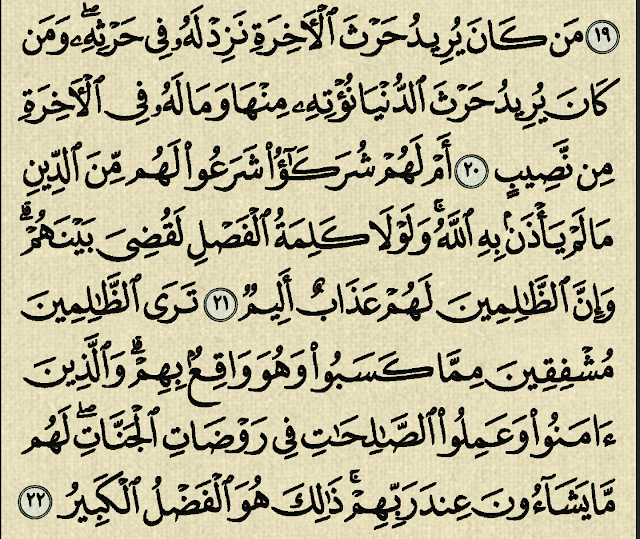 ١٩ مَن كَانَ يُرِيدُ حَرْثَ ٱلْأَخِرَةِ نَزِدْ لَهُۥ فِى حَرْثِهِۦۖ وَمَن
كَانَ يُرِيدُ حَرْثَ ٱلدُّنْيَا نُؤْتِهِۦ مِنْهَا وَمَا لَهُۥ فِى ٱلْأَخِرَةِ
مِن نَّصِيبٍ ٢٠ أَمْ لَهُمْ شُرَكَـٰٓؤُا۟ شَرَعُوا۟ لَهُم مِّنَ ٱلدِّينِ
مَا لَمْ يَأْذَنۢ بِهِ ٱللَّهُۚ وَلَوْلَا كَلِمَةُ ٱلْفَصْلِ لَقُضِىَ بَيْنَهُمْۗ
وَإِنَّ ٱلظَّـٰلِمِينَ لَهُمْ عَذَابٌ أَلِيمٌ ٢١ تَرَى ٱلظَّـٰلِمِينَ
مُشْفِقِينَ مِمَّا كَسَبُوا۟ وَهُوَ وَاقِعٌۢ بِهِمْۗ وَٱلَّذِينَ
ءَامَنُوا۟ وَعَمِلُوا۟ ٱلصَّـٰلِحَـٰتِ فِى رَوْضَاتِ ٱلْجَنَّاتِۖ لَهُم
مَّا يَشَآءُونَ عِندَ رَبِّهِمْۚ ذَٰلِكَ هُوَ ٱلْفَضْلُ ٱلْكَبِيرُ ٢٢